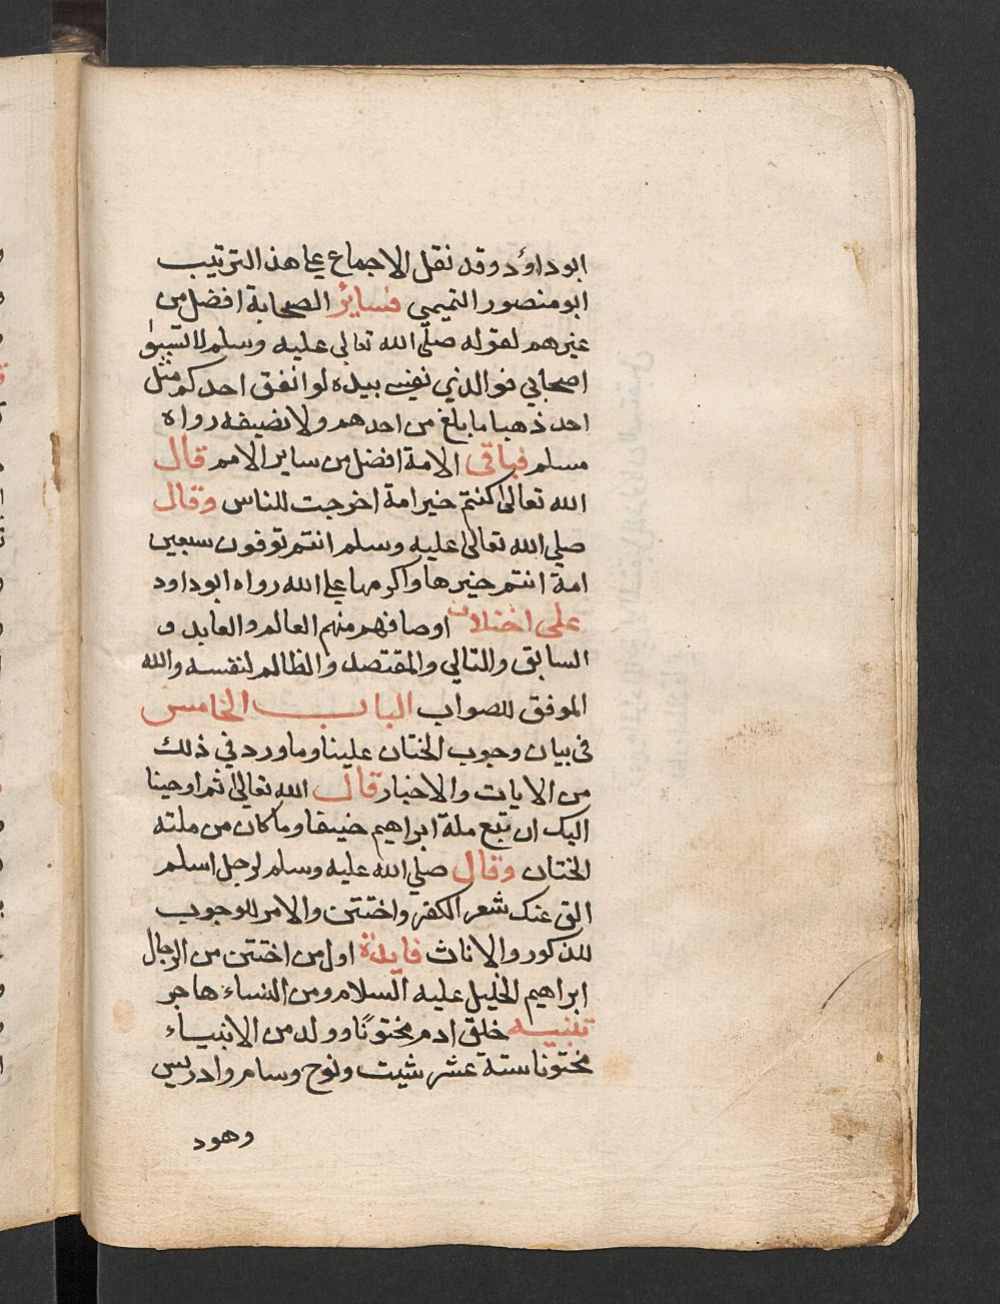 ابوداؤد وقد نقل الاجماع على هذا الترتيب
ابو منصور التميمي فساير الصحابة افضل من
غيرهم لقوله صلى الله تعالى عليه وسلم لا تسبوا
اصحابي فوالذي نفسي بيده لو انفق احدكم مثل
احد ذهبا ما بلغ من احدهم ولا نصيفه رواه
مسلم فباقي الامة افضل من ساير الامم قال
الله تعالى كنتم خير امة اخرجت للناس وقال
صلي الله تعالى عليه وسلم انتم توفون سبعين
امة انتم خيرها واكرمها على الله رواه ابوداود
على اختلاف اوصافهم منهم العالم والعابد و
السابق والتالي والمقتصد والظالم لنفسه والله
الموفق للصواب الباب الخامس
في بيان وجوب الختان علينا وما ورد في ذلك
من الايات والاخبار قال الله تعالى ثم اوحينا
اليك ان تبع ملة ابراهيم حنيفا وما كان من ملته
الختان وقال صلي الله عليه وسلم لرجل اسلم
الق عنك شعر الكفر واختتن والامر للوجوب
للذكور والاناث فايدة اول من اختتن من الرجال
ابراهيم الخليل عليه السلام ومن النساء هاجر
تنبيه خلق ادم مختونًا وولد من الانبياء
مختونا ستة عشر شيت ونوح وسام وادريس
وهود